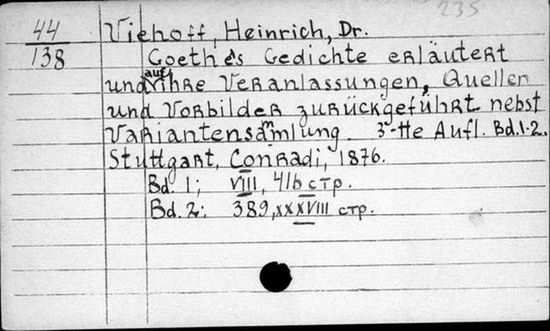 235
44 Viehoff, Heinrich, Dr.
138 Goethes Gedichte erläutert
und auf ihre Veranlassungen, Quellen
und Vorbilder zurückgeführt nebst
Variantensammlung. 3-tte Aufl. Bd.1-2.
Stuttgart, Conradi, 1876.
Bd. 1; VIII, 416 стр.
Bd. 2: 389, XXXVIII стр.